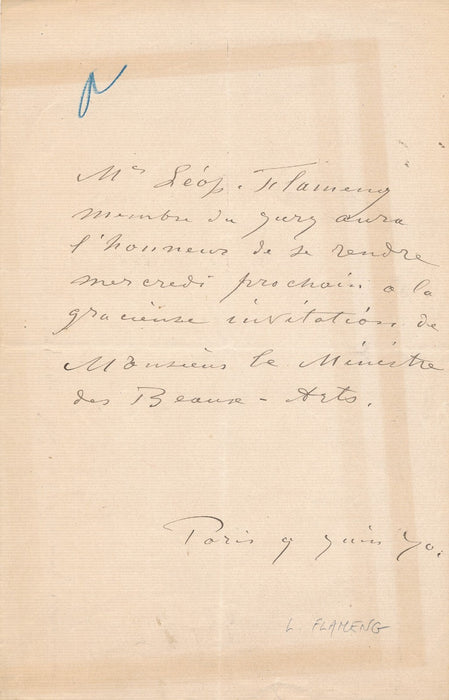 Mr Léop. Flameng
membre du jury aura
l'honneur de se rendre
mercredi prochain a la
gracieuse invitation de
Monsieur le Ministre
des Beaux-Arts.
Paris 9 juin 70.
L. FLAMENG